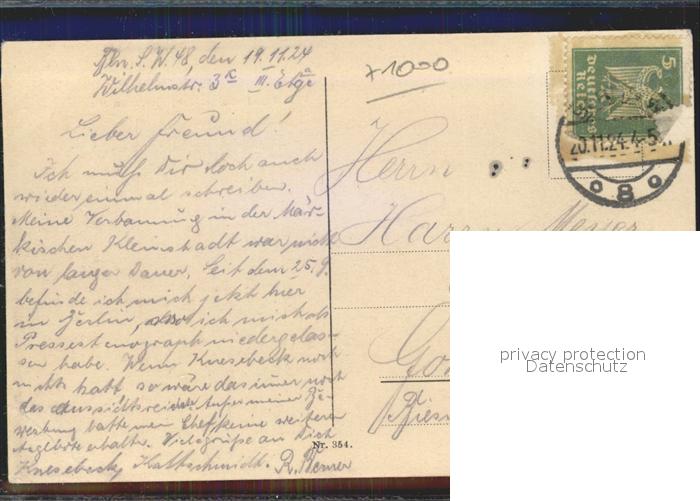 Bln. S.W. 48, den 19.11.24
Wilhelmstr. 3 III. Etge
Lieber Freund!
Ich muß Dir doch auch
wieder einmal schreiben.
Meine Verbannung in der Mär-
kischen Kleinstadt war nicht
von langer Dauer. Seit dem 25.9.
befinde ich mich jetzt hier
in Berlin, wo ich mich als
Pressestenograph niedergelas-
sen habe. Wenn Knesebeck noch
nichts hatt so wäre das immer noch
das Aussichtsreichste. Außer meiner Be-
werbung hatte mein Chef keine weiteren
erhalten. Viele Grüße an Dich
Knesebeck, Kaltschmidt.
+1000
Herrn
Meyer
Nr. 354.
5
Deutsches Reich
20.11.24. 4-5
8
privacy protection
Datenschutz